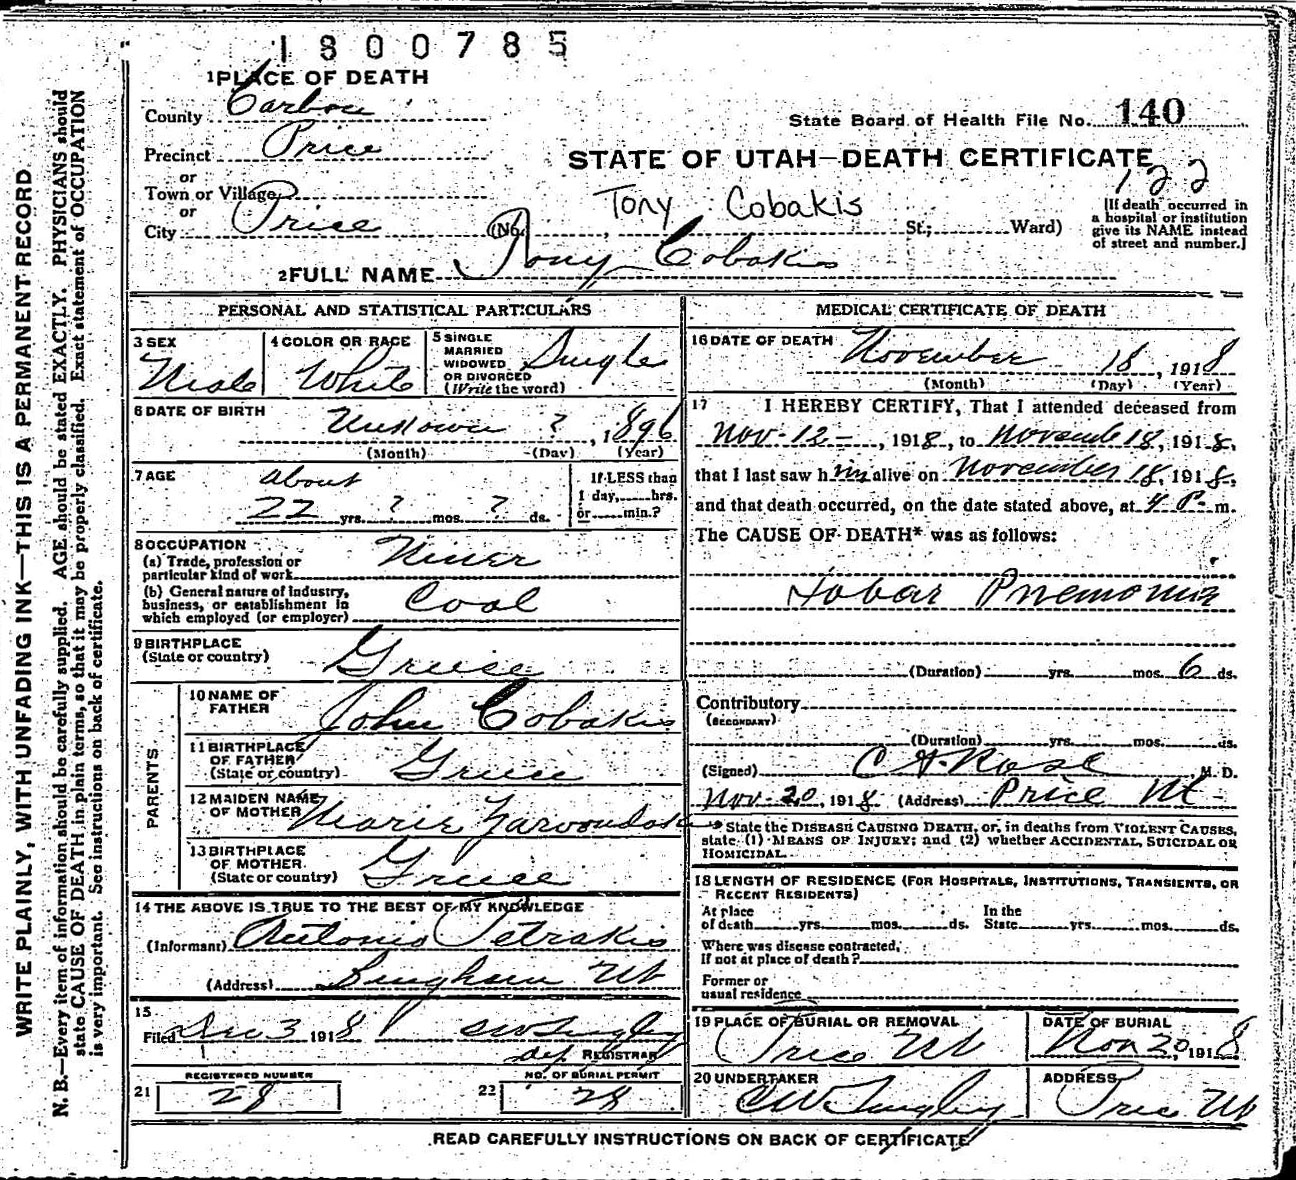 1800785
1 PLACE OF DEATH
County Carbon
State Board of Health File No. 140
Precinct Price
STATE OF UTAH—DEATH CERTIFICATE
122
or
Town or Village
or
City Price (No. , Tony Cobakis St.; Ward)
[If death occurred in
a hospital or institution
give its NAME instead
of street and number.]
2 FULL NAME Tony Cobakis
PERSONAL AND STATISTICAL PARTICULARS
3 SEX
Male
4 COLOR OR RACE
White
5 SINGLE
MARRIED
WIDOWED
OR DIVORCED
(Write the word)
Single
6 DATE OF BIRTH
Unknown ? , 1896
(Month) (Day) (Year)
7 AGE
about
22 yrs. ? mos. ? ds.
If LESS than
1 day, hrs.
or min.?
8 OCCUPATION
(a) Trade, profession or
particular kind of work
Miner
(b) General nature of industry,
business, or establishment in
which employed (or employer)
Coal
9 BIRTHPLACE
(State or country)
Greese
PARENTS
10 NAME OF
FATHER
John Cobakis
11 BIRTHPLACE
OF FATHER
(State or country)
Greese
12 MAIDEN NAME
OF MOTHER
Marie
13 BIRTHPLACE
OF MOTHER
(State or country)
Greese
14 THE ABOVE IS TRUE TO THE BEST OF MY KNOWLEDGE
(Informant) Antonio Petrakis
(Address) Bingham Ut
15
Filed Dec 3 1918
dep REGISTRAR
REGISTERED NUMBER
21 28
NO. OF BURIAL PERMIT
22 28
MEDICAL CERTIFICATE OF DEATH
16 DATE OF DEATH
November 18, 1918
(Month) (Day) (Year)
17 I HEREBY CERTIFY, That I attended deceased from
Nov-12-, 1918, to November 18, 1918,
that I last saw him alive on November 18, 1918,
and that death occurred, on the date stated above, at 4 P. m.
The CAUSE OF DEATH* was as follows:
Lobar Pnemonia
(Duration) yrs. mos. 6 ds.
Contributory
(SECONDARY)
(Duration) yrs. mos. ds.
(Signed) M. D.
Nov-20, 1918 (Address) Price Ut-
* State the DISEASE CAUSING DEATH, or, in deaths from VIOLENT CAUSES,
state (1) MEANS OF INJURY; and (2) whether ACCIDENTAL, SUICIDAL OR
HOMICIDAL.
18 LENGTH OF RESIDENCE (FOR HOSPITALS, INSTITUTIONS, TRANSIENTS, OR
RECENT RESIDENTS)
At place
of death yrs. mos. ds.
In the
State yrs. mos. ds.
Where was disease contracted,
If not at place of death?
Former or
usual residence
19 PLACE OF BURIAL OR REMOVAL
Price Ut
DATE OF BURIAL
Nov 20, 1918
20 UNDERTAKER
ADDRESS
Price Ut
READ CAREFULLY INSTRUCTIONS ON BACK OF CERTIFICATE
WRITE PLAINLY, WITH UNFADING INK—THIS IS A PERMANENT RECORD
N. B.—Every item of information should be carefully supplied. AGE should be stated EXACTLY. PHYSICIANS should
state CAUSE OF DEATH in plain terms, so that it may be properly classified. Exact statement of OCCUPATION
is very important. See instructions on back of certificate.